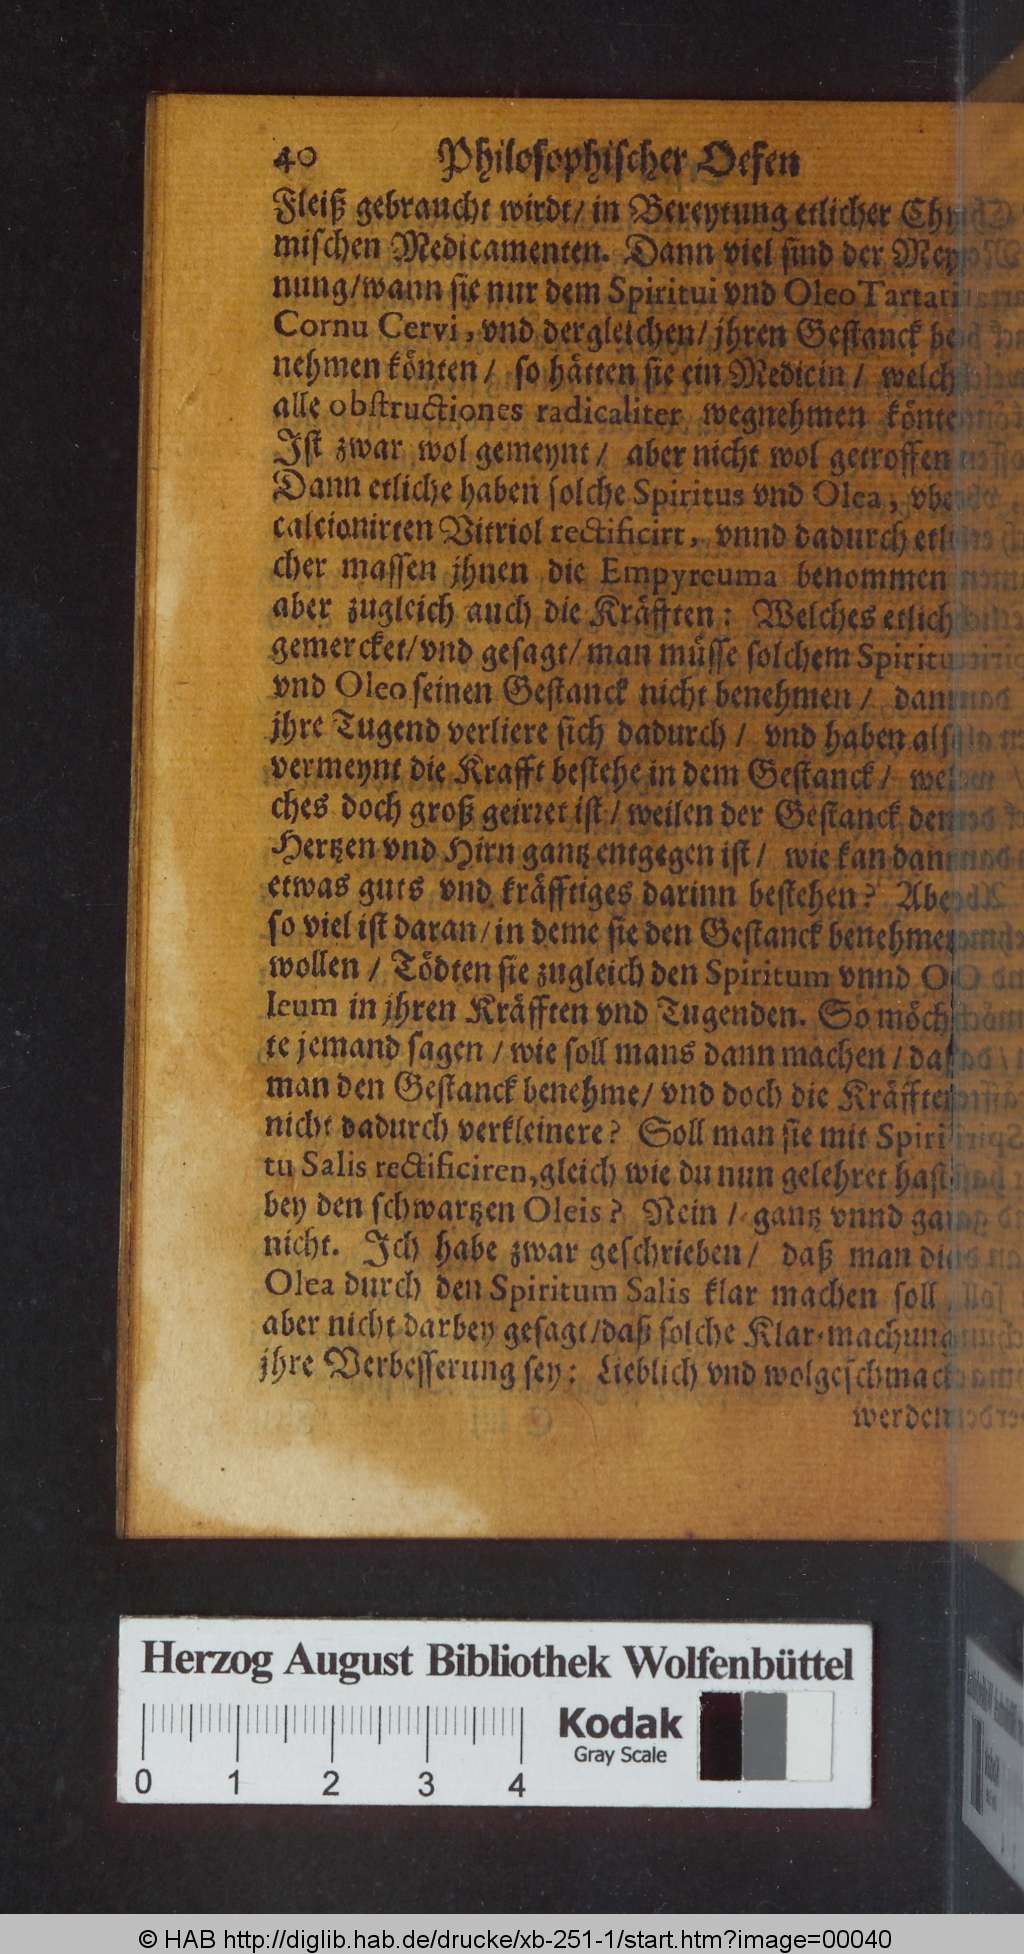 40 Philosophischer Oefen
Fleiß gebraucht wirdt/ in Bereytung etlicher Chy-
mischen Medicamenten. Dann viel sind der Mey-
nung/wann sie nur dem Spiritui vnd Oleo Tartari
Cornu Cervi, vnd dergleichen/ jhren Gestanck be-
nehmen könten / so hätten sie ein Medicin / welch
alle obstructiones radicaliter wegnehmen könte
Ist zwar wol gemeynt / aber nicht wol getroffen
Dann etliche haben solche Spiritus vnd Olea, vber
calcionirten Vitriol rectificirt, vnnd dadurch etli-
cher massen jhnen die Empyreuma benommen
aber zugleich auch die Kräfften: Welches etlich
gemercket/vnd gesagt/ man müsse solchem Spiritu
vnd Oleo seinen Gestanck nicht benehmen / dann
jhre Tugend verliere sich dadurch / vnd haben also
vermeynt die Krafft bestehe in dem Gestanck / wel-
ches doch groß geirret ist / weilen der Gestanck dem
Hertzen vnd Hirn gantz entgegen ist / wie kan dann
etwas guts vnd kräfftiges darinn bestehen? Aber
so viel ist daran/ in deme sie den Gestanck benehmen
wollen / Tödten sie zugleich den Spiritum vnnd O-
leum in jhren Kräfften vnd Tugenden. So möch-
te jemand sagen / wie soll mans dann machen / daß
man den Gestanck benehme/ vnd doch die Kräfften
nicht dadurch verkleinere? Soll man sie mit Spiri-
tu Salis rectificiren, gleich wie du nun gelehret hast
bey den schwartzen Oleis? Nein / gantz vnnd gar
nicht. Ich habe zwar geschrieben / daß man die
Olea durch den Spiritum Salis klar machen soll
aber nicht darbey gesagt/daß solche Klar-machung
jhre Verbesserung sey: Lieblich vnd wolgeschmack
werden
Herzog August Bibliothek Wolfenbüttel
Kodak
Gray Scale
0 1 2 3 4
© HAB http://diglib.hab.de/drucke/xb-251-1/start.htm?image=00040